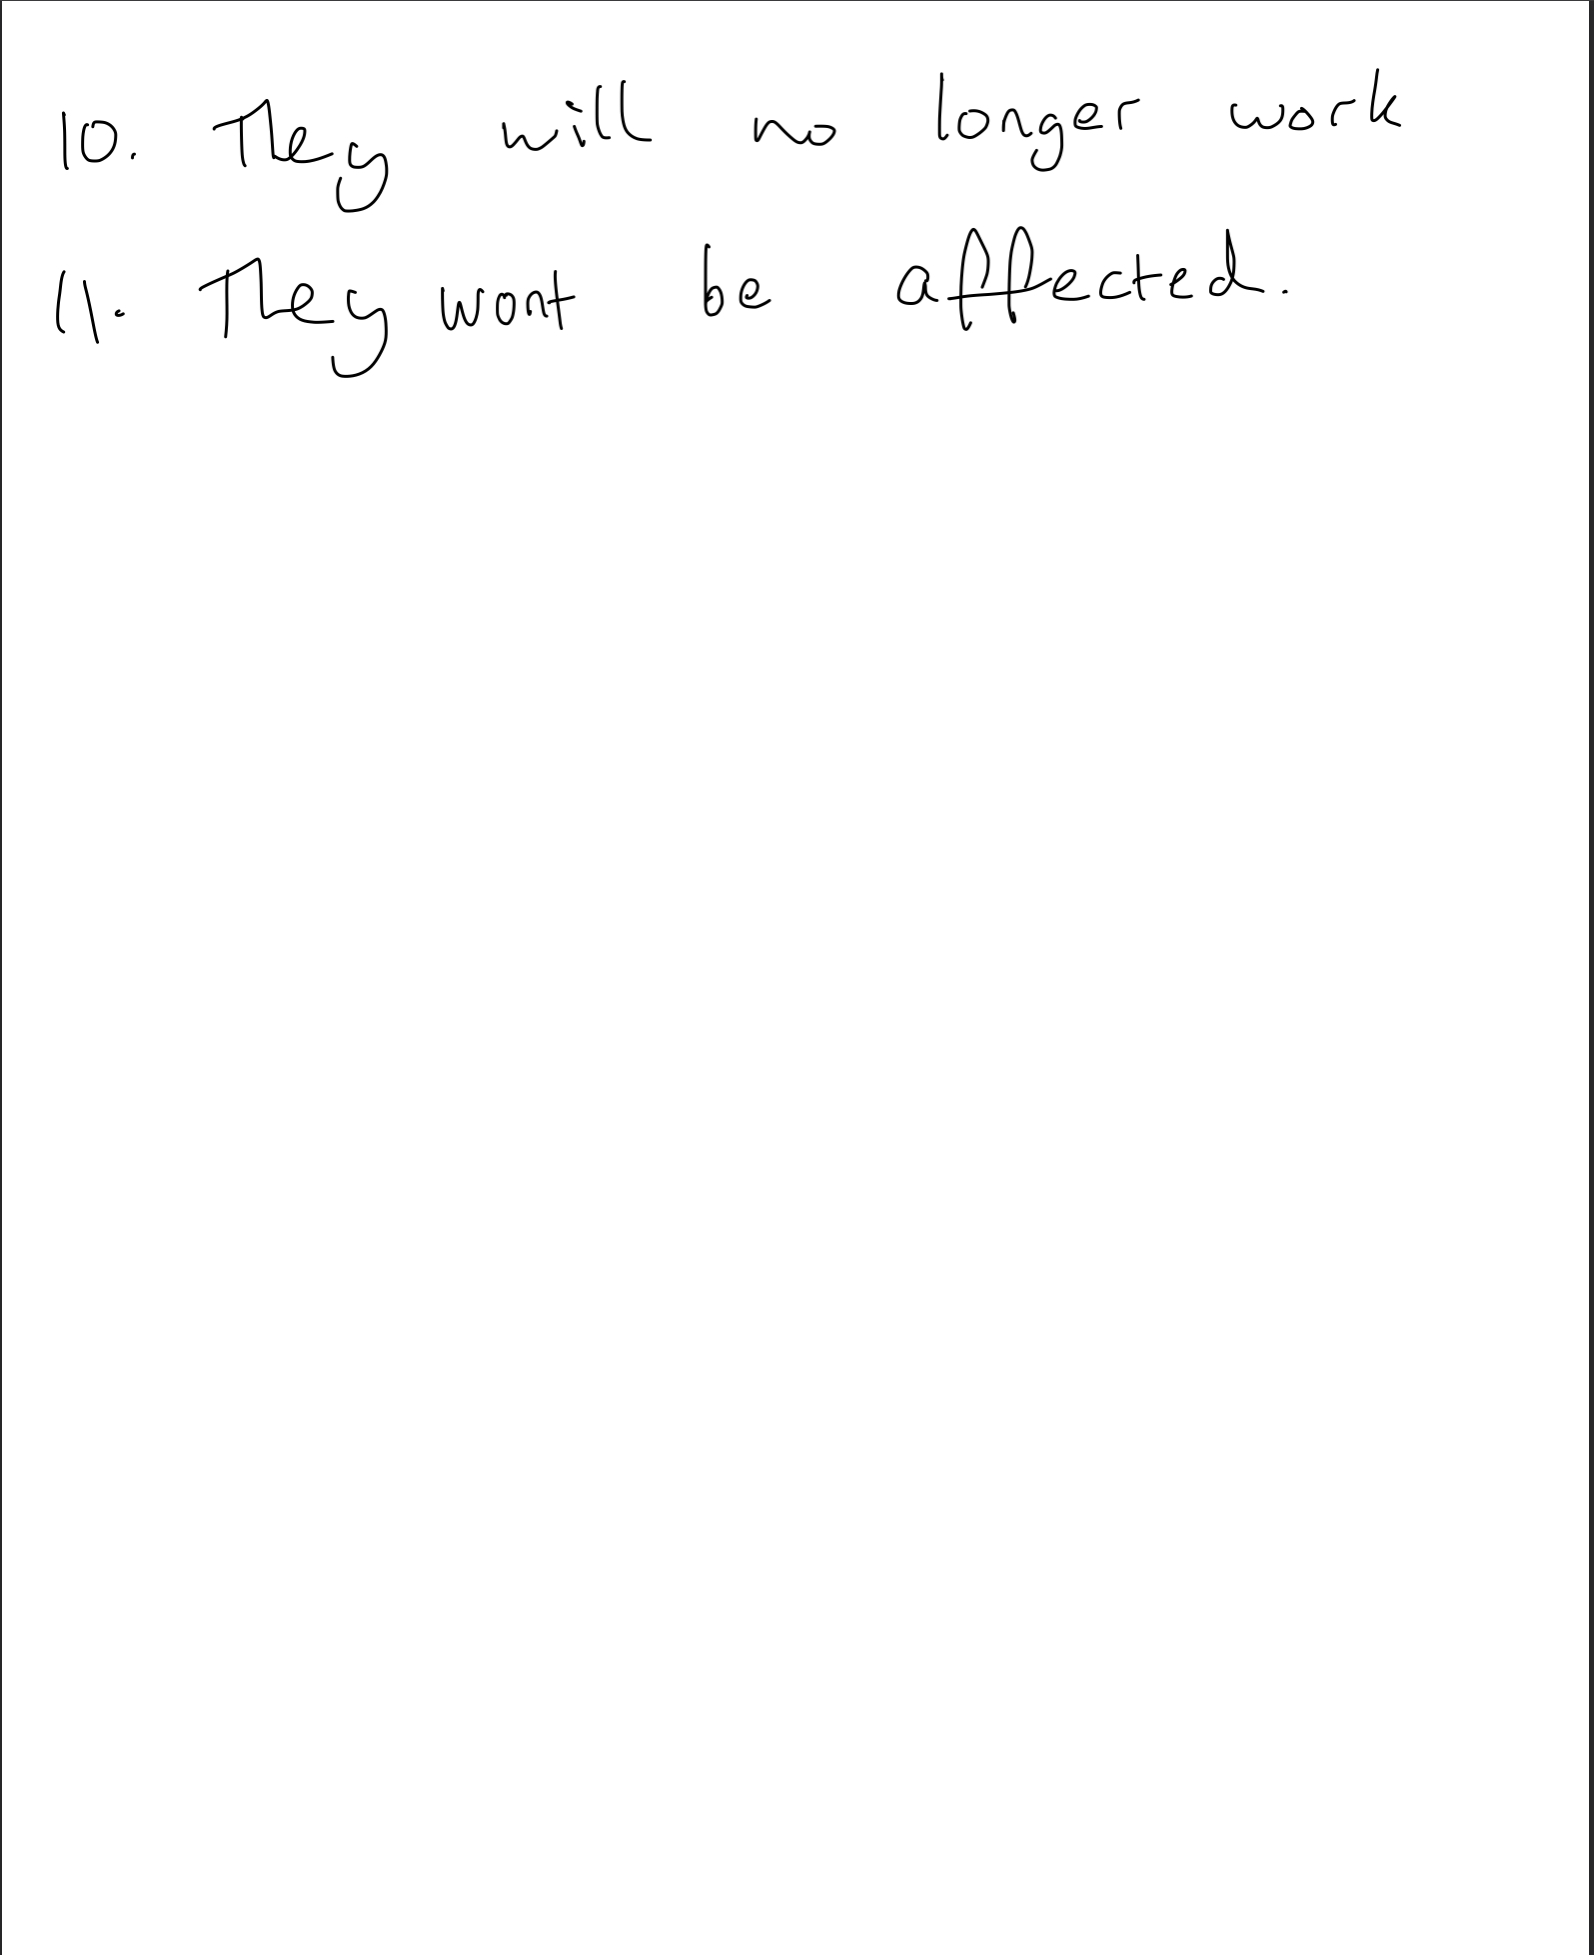 10. They will no longer work
11. They wont be affected.